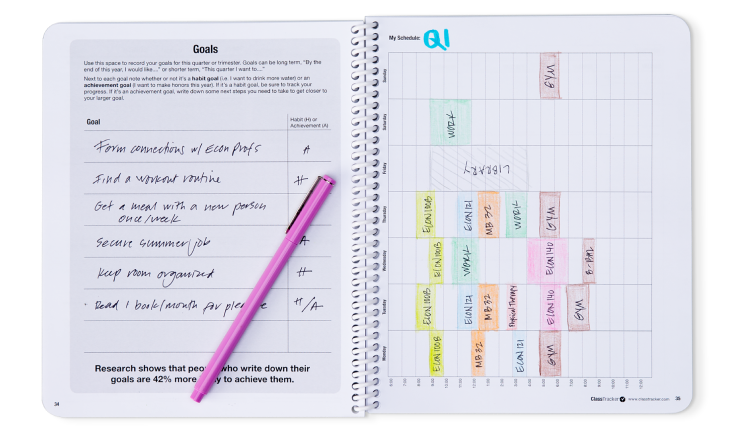 Goals
Use this space to record your goals for this quarter or trimester. Goals can be long term, "By the
end of this year, I would like..." or shorter term, "This quarter I want to...."
Next to each goal note whether or not it's a habit goal (i.e. I want to drink more water) or an
achievement goal (I want to make honors this year). If it's a habit goal, be sure to track your
progress. If it's an achievement goal, write down some next steps you need to take to get closer to
your larger goal.
Goal
Habit (H) or
Achievement (A)
Form connections w/ Econ Profs A
Find a workout routine H
Get a meal with a new person
once/week
Secure summer job A
Keep room organized H
Read 1 book/month for H/A
Research shows that who write down their
goals are 42% more to achieve them.
34
My Schedule: Q1
Sunday
GYM
Saturday
WORK
Friday
LIBRARY
Thursday
ECON 100B
ECON 121
MB 32
WORK
GYM
Wednesday
ECON 100B
WORK
ECON 140
B-BALL
Tuesday
ECON 100B
ECON 121
MB 32
Physical Therapy
ECON 140
GYM
Monday
ECON 100B
MB 32
ECON 121
GYM
ClassTracker www.classtracker.com 35